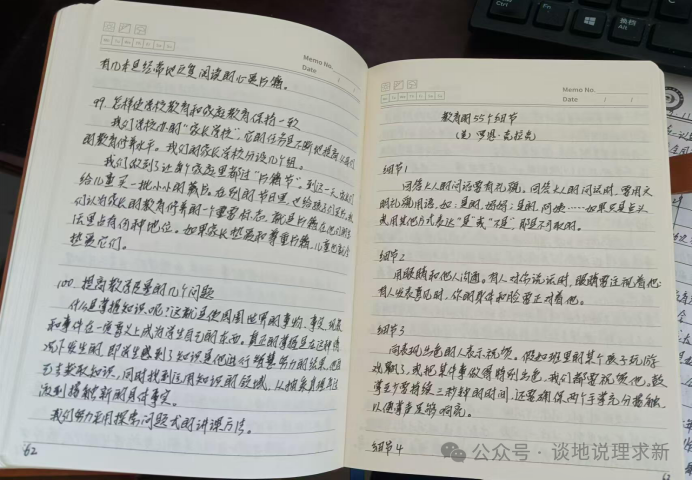 Memo No.
Date / /
有几本是经常地反复阅读的心爱书籍。
99. 怎样使学校教育和家庭教育保持一致
我们学校办的“家长学校”，它的任务是不断地提高父母们
的教育修养水平。我们的家长学校分设几个组。
我们做到了让每个家庭里都过“书籍节”。到这一天，父母们
给儿童买一批小小的藏书。在别的节日里，也给孩子们
们认为家长的教育修养的一个重要标志，就是书籍在他们的
活里占有何种地位。如果家长热爱和尊重书籍，儿童也就会
热爱它们。
100. 提高教育质量的几个问题
什么是掌握知识呢？这就是使周围世界的事物、事实、现象
和事件在一定意义上成为学生自己的东西。真正的掌握是在这种情
况下发生的，即学生感到了知识是他进行智慧努力的结果，他自
己去获取知识，同时找到运用知识的领域，从抽象真理
做到接触新的具体事实。
我们努力采用探索问题式的讲课方法。
62
Memo No.
Date / /
教育的55个细节
（美）罗恩·克拉克
细节1
回答大人的问话要有礼貌。回答大人的问话时，要用文
明礼貌用语，如：是的，妈妈；是的，阿姨……如果只是点头
或用其他方式表达“是”或“不是”，那是不可取的。
细节2
用眼睛和他人沟通。有人对你说话时，眼睛要注视着他；
有人发表意见时，你的身体和脸要正对着他。
细节3
向表现出色的人表示祝贺。假如班里的某个孩子玩游
戏赢了，或把某件事做得特别出色，我们都要祝贺他，鼓
掌至少要持续三秒钟的时间，还要确保两个手掌充分接触，
以使掌声足够响亮。
细节4
63
公众号·谈地说理求新